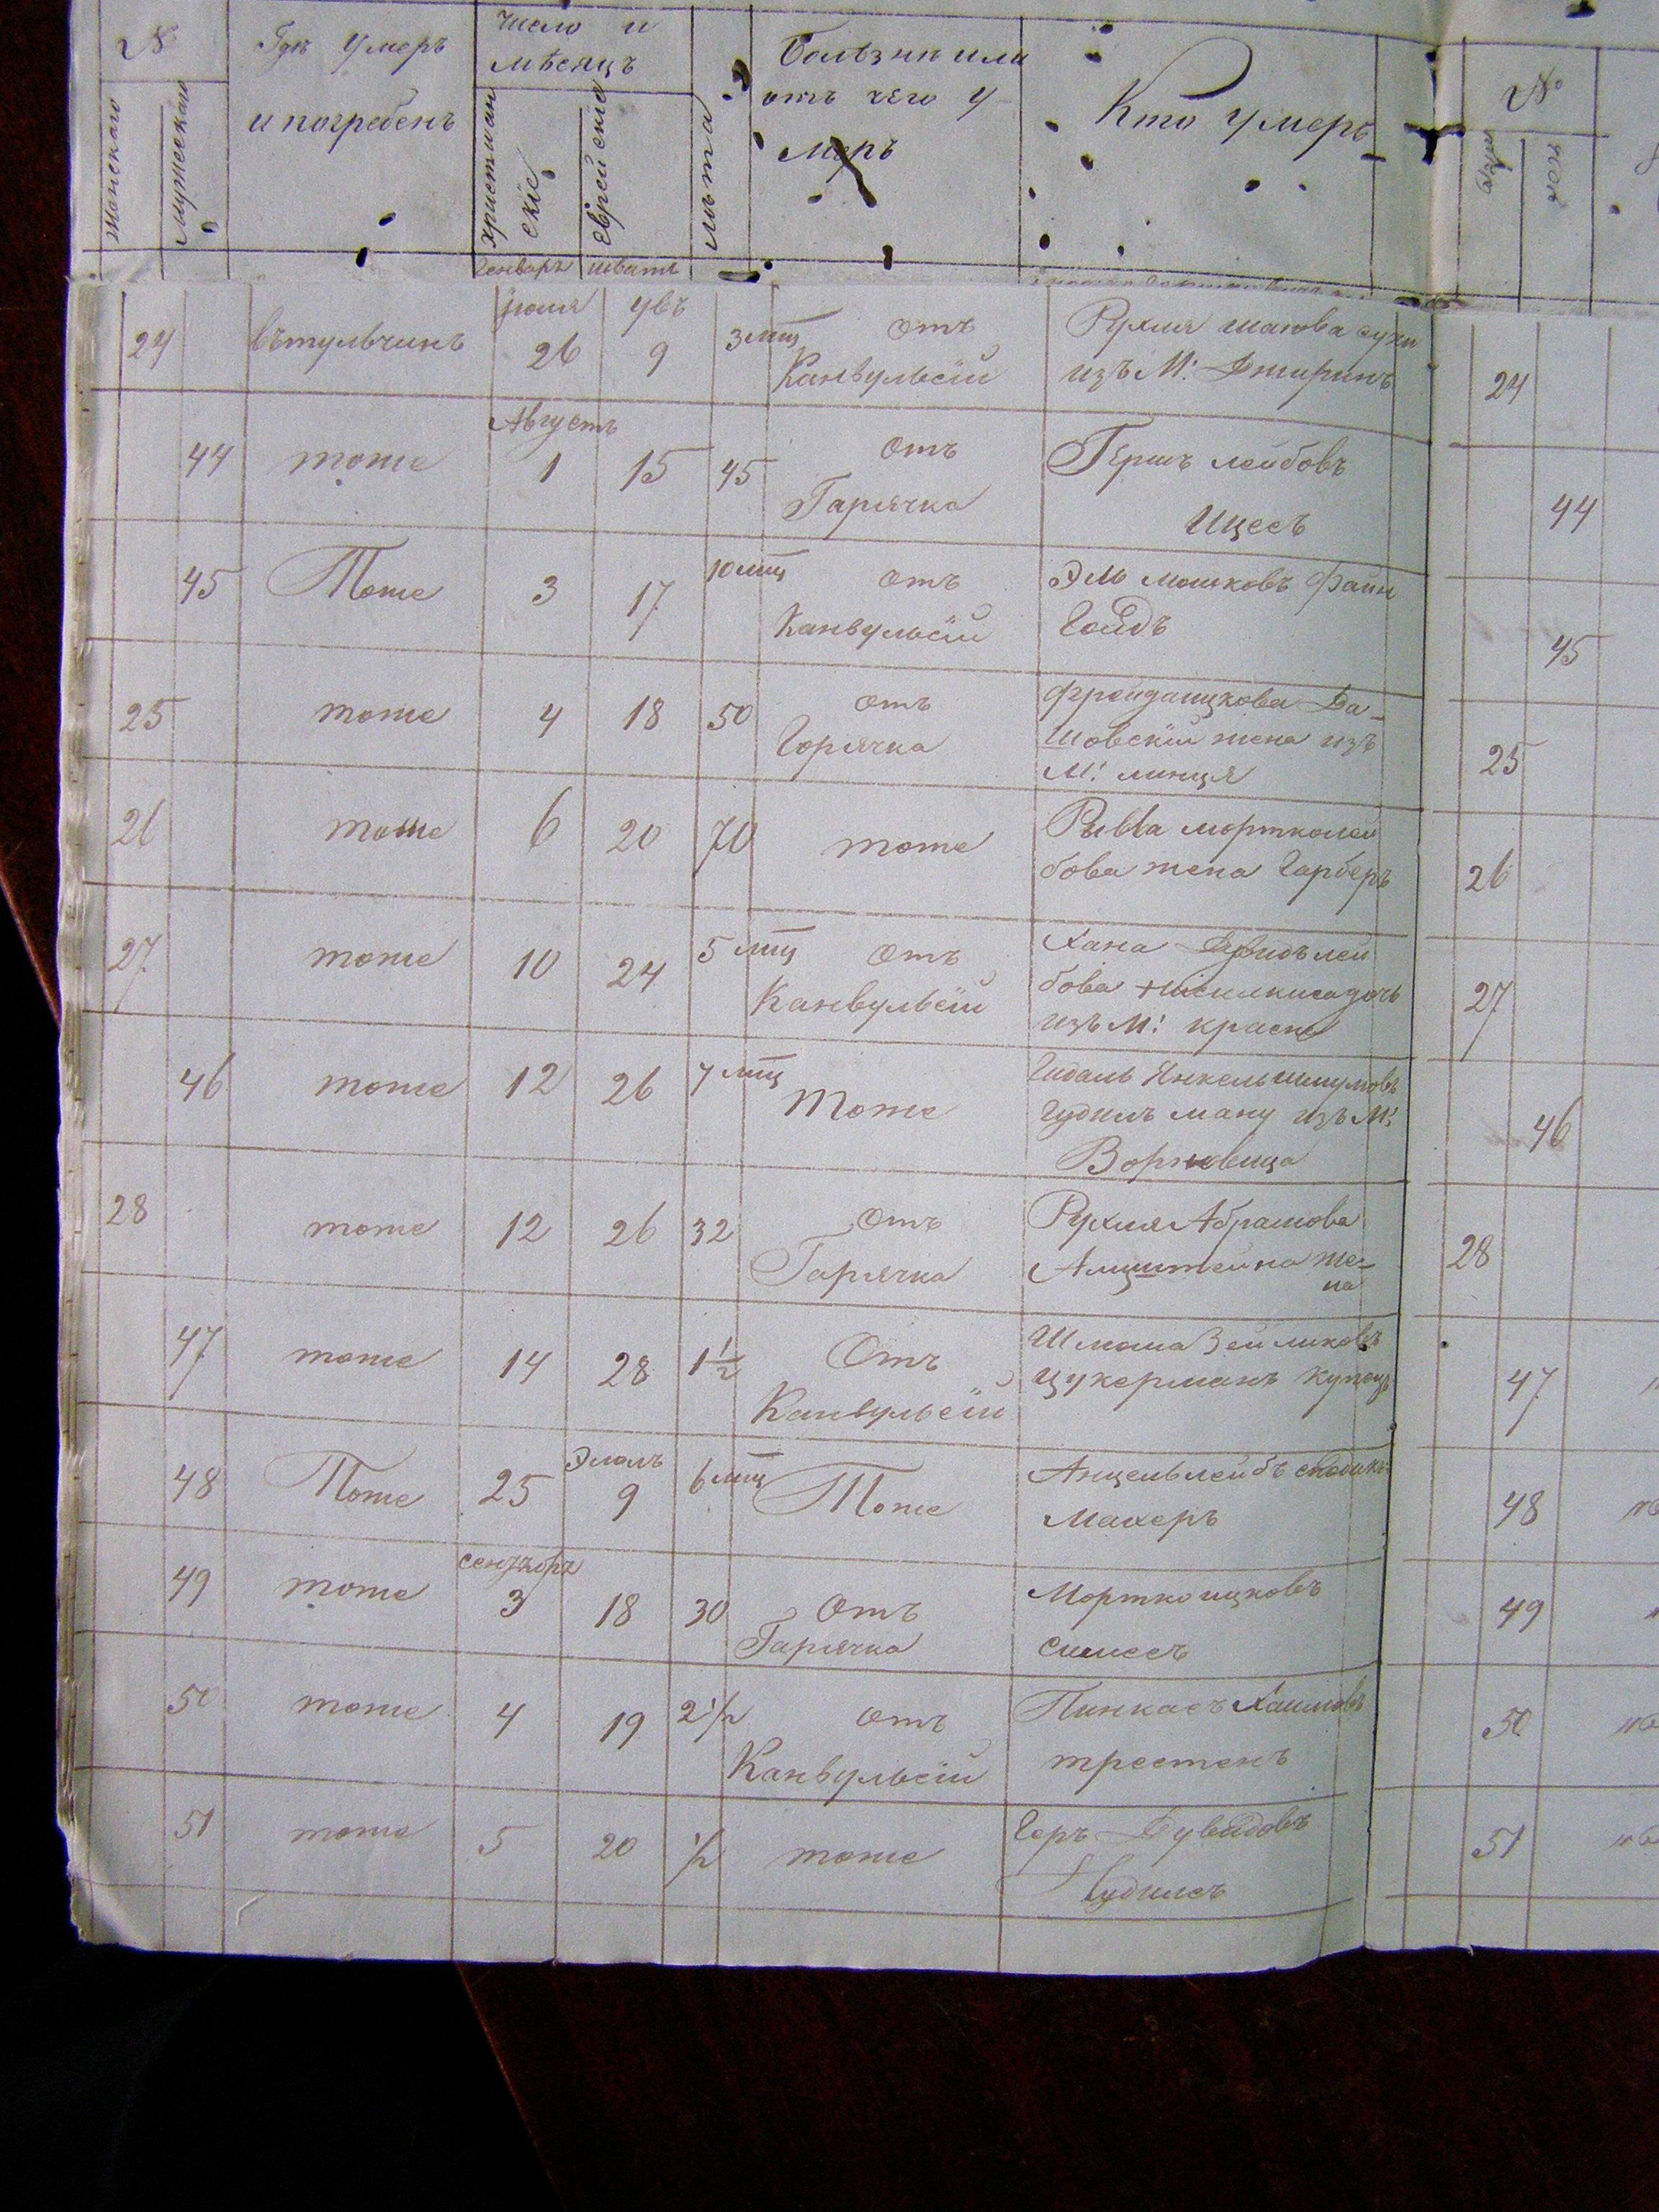 №
Женскаго
Мужескаго
Гдѣ Умеръ
и погребенъ
Число и
мѣсяцъ
христіан
скіе
Еврейскіе
Генваръ шватъ
лѣта
Болѣзнь или
отъ чего У
меръ
Кто Умеръ
№
муж
жен
24 вътульчинъ июля 26 увъ 9 3 мцъ отъ
Канвульсій
Рухля
изъ М: Джуринъ
24
44 тоже Августъ 1 15 45 отъ
Гарячка
Гершъ лейбовъ
Ицесъ
44
45 Тоже 3 17 10 мцъ отъ
Канвульсій
Эль мошковъ Файн
Гойдъ
45
25 тоже 4 18 50 отъ
Горячка
Фрейда ицкова Ба-
шовскій жена изъ
М: линця
25
26 тоже 6 20 70 тоже
Рывва мортколей
бова жена Гарберъ
26
27 тоже 10 24 5 мцъ отъ
Канвульсій
Хана Дувидълей
бова дочь
изъ М: красне
27
46 тоже 12 26 7 мцъ Тоже
Гидаль Янкель шмулювъ
изъ М:
46
28 тоже 12 26 32 отъ
Гарячка
Рухля Абрамова
же-
на
28
47 тоже 14 28 1½ Отъ
Канвульсій
Шлюма Зейликовъ
Цукерманъ купецъ
47
48 Тоже 25 Элюлъ 9 6 мцъ Тоже
Анцель лейбъ
Махеръ
48
49 тоже сентябръ 3 18 30 Отъ
Гарячка
Мортко ицковъ
49
50 тоже 4 19 2½ отъ
Канвульсій
Пинкасъ Хаимовъ
50
51 тоже 5 20 ½ тоже
Геръ Дувидовъ
51